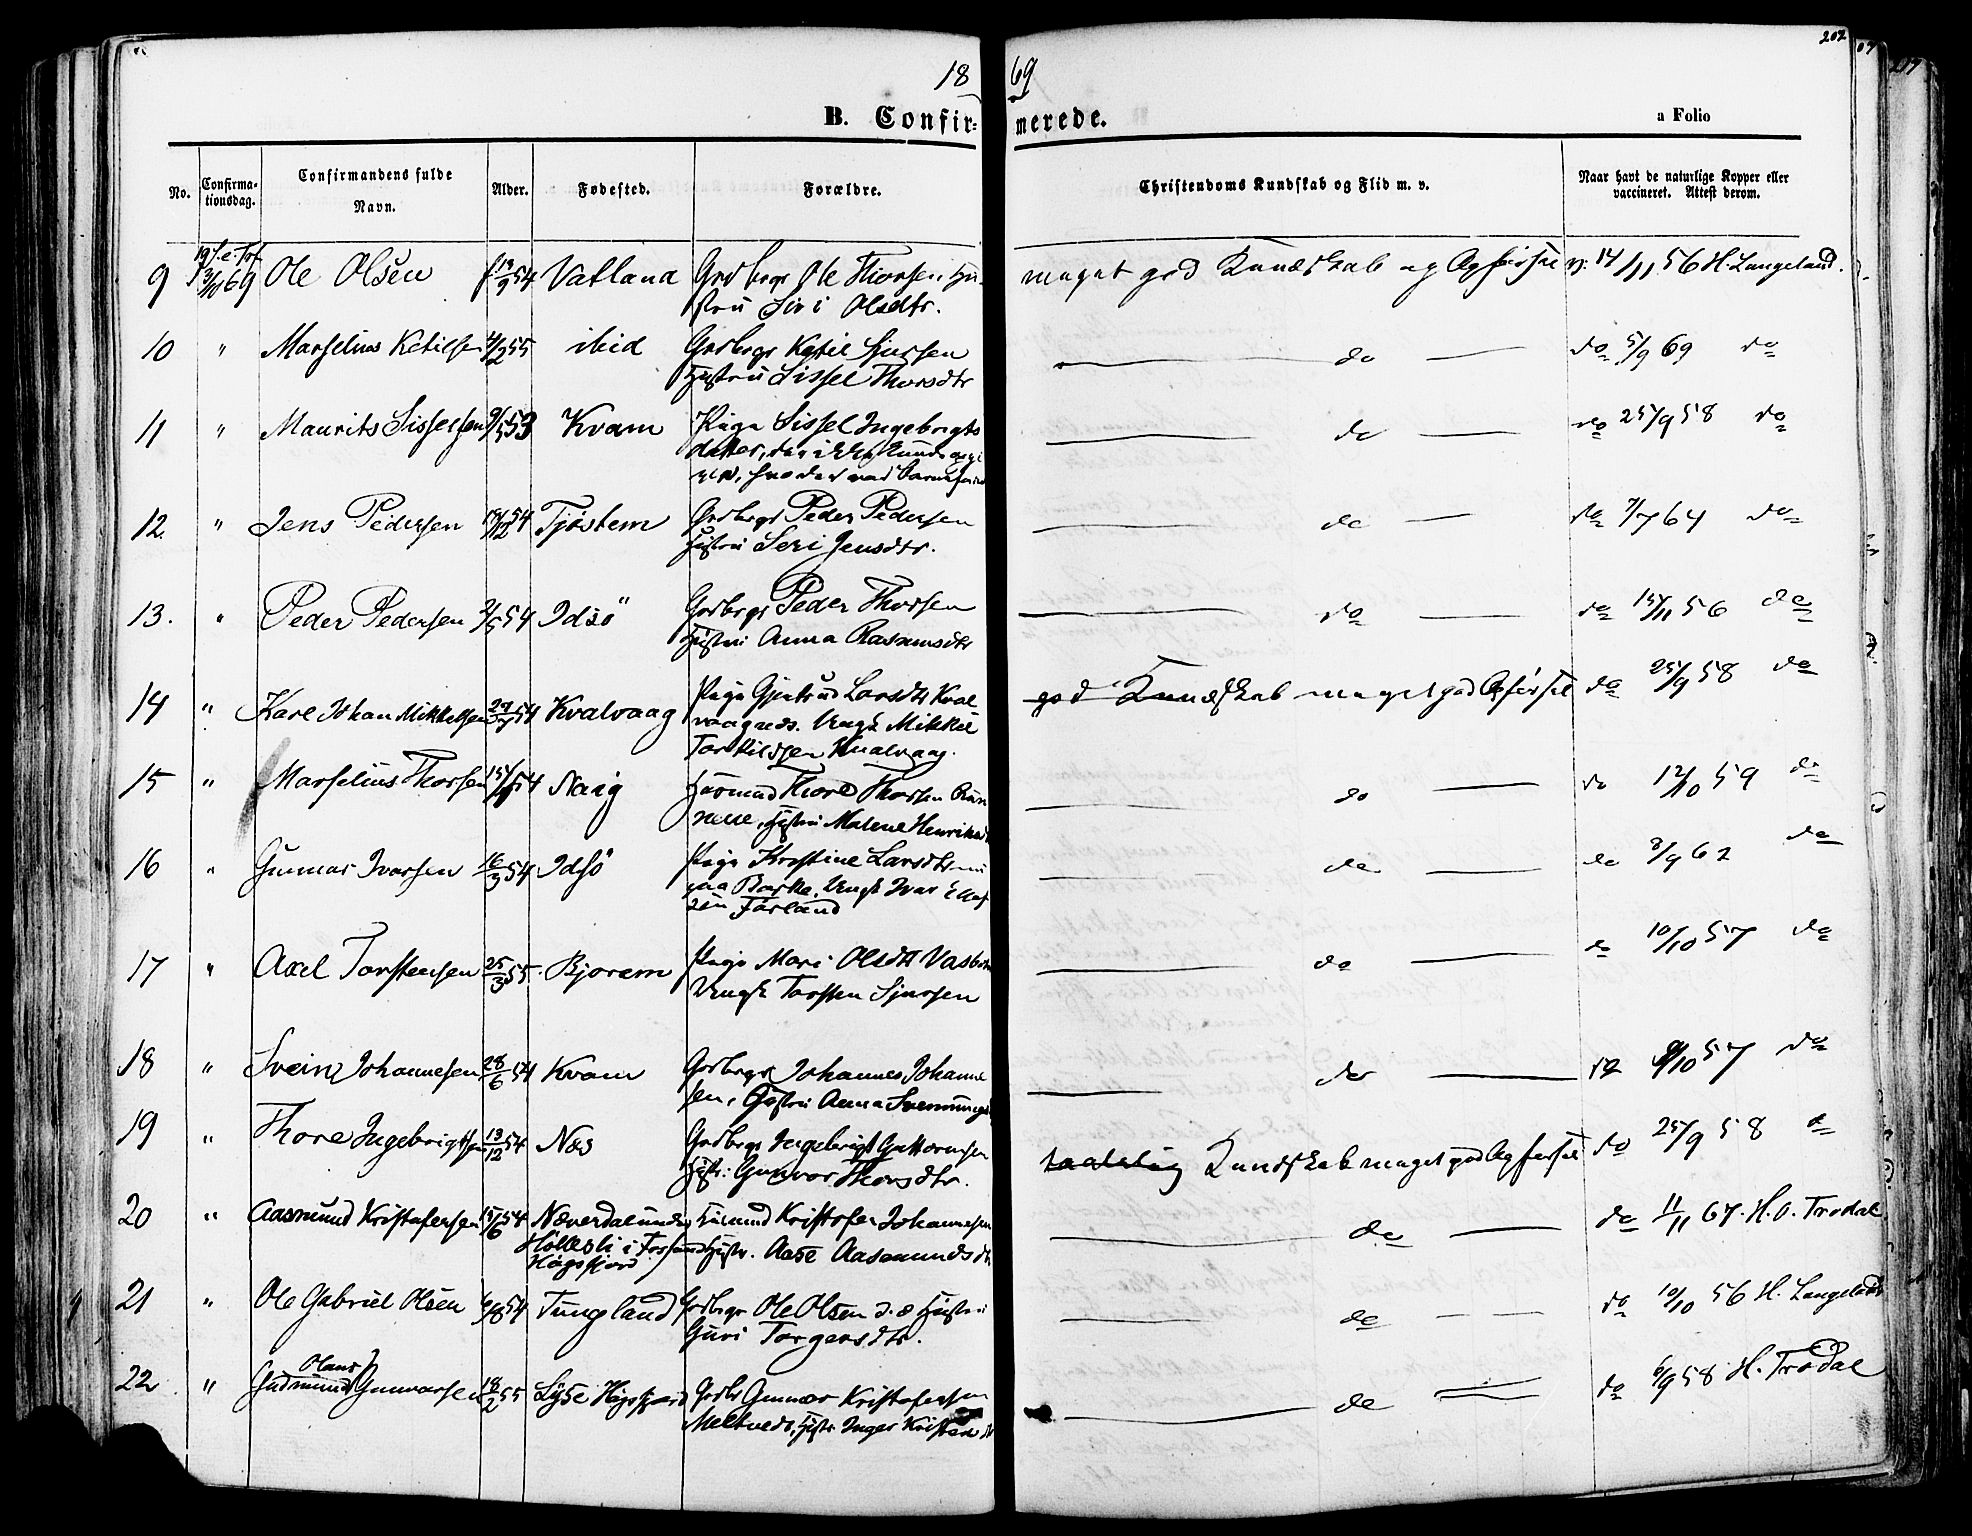 202
18 69
B. Confirmerede.
a Folio
No.
Confirmationsdag.
Confirmandens fulde Navn.
Alder.
Fødested.
Forældre.
Christendoms Kundskab og Flid m. v.
Naar havt de naturlige Kopper eller vaccineret. Attest derom.
9 19 S. e. Tref. 3/10 69 Ole Olsen f 54 Vatland Grdbrgr Ole Thorsen Hu- meget god Kundskab og Opførsel v. 14/11 56 H. Langeland.
stru Siri Olsdtr.
10 " Marselius Ketilsen 55 ibid Grdbrgr Ketil Sjursen do do 5/9 69 do
Hustru Sissel Thorsdtr
11 " Maurits Sisselsen 53 Kvam Pige Sissel Ingebrgts do do 25/9 58 do
datter, der ikke kunde opgi
ve, hvo der var Barnefader
12. " Jens Pedersen 54 Tjöstem Grdbrgr Peder Pedersen do do 7/7 64 do
Hustru Seri Jensdtr.
13. " Peder Pedersen 2/5 54 Idsö Grdbrgr Peder Thorsen do do 15/11 56 do
Hustru Anna Rasmusdtr
14 " Karl Johan Mikkelsen 54 Kvalvaag Pige Gjertrud Larsdtr Kval- god Kundskab meget god Opførsel do 25/9 58 do
vaagnes. Ungk Mikkel
Torkildsen Kvalvaag.
15 " Marselius Thorsen 54 Naag Husmand Thore Thorsen do do 12/10 59 do
Hustru Malene Henriksd
16 " Gunnar Ivarsen 16/3 54 Idsö Pige Kirstine Larsdtr nu do do 8/9 62 do
paa Barka. Ungk Ivar
Førland
17 " Axel Torstensen 25/3 55. Bjorem Pige Mari Olsdtr Vasbo do do 10/10 57 do
Ungk Torsten Sjursen
18 " Svein Johannesen 28/6 54 Kvam Grdbrgr Johannes Johanne do do 9/10 57 do
sen, Hustru Anna Svenningsd
19 " Thore Ingebrigtsen 13/12 54 Næs Grdbrgr Ingebrigt Guttormsen taalelig Kundskab meget god Opførsel do 25/9 58 do
Hustr: Gunvor Thorsdtr.
20 " Aasmund Kristofersen 15/6 54 Næverdal under Husmand Kristofer Johannesen do do 11/11 67. H. O. Trodal
Hölleslī i Forsand Hustr. Aase Aasmundsdt
Högsfjord
21 " Ole Gabriel Olsen 54 Tungland Grdbrgr Ole Olsen og Hustru do do 10/10 56 H. Langeland
Guri Torgersdtr.
22 " Gudmund Olaus Gunnarsen 18/2 55 Lyse Högsfjord Grdbr Gunnar Kristofersen do do 6/9 58 H. Trodal
Meltveds, Hustr Inger Kristen